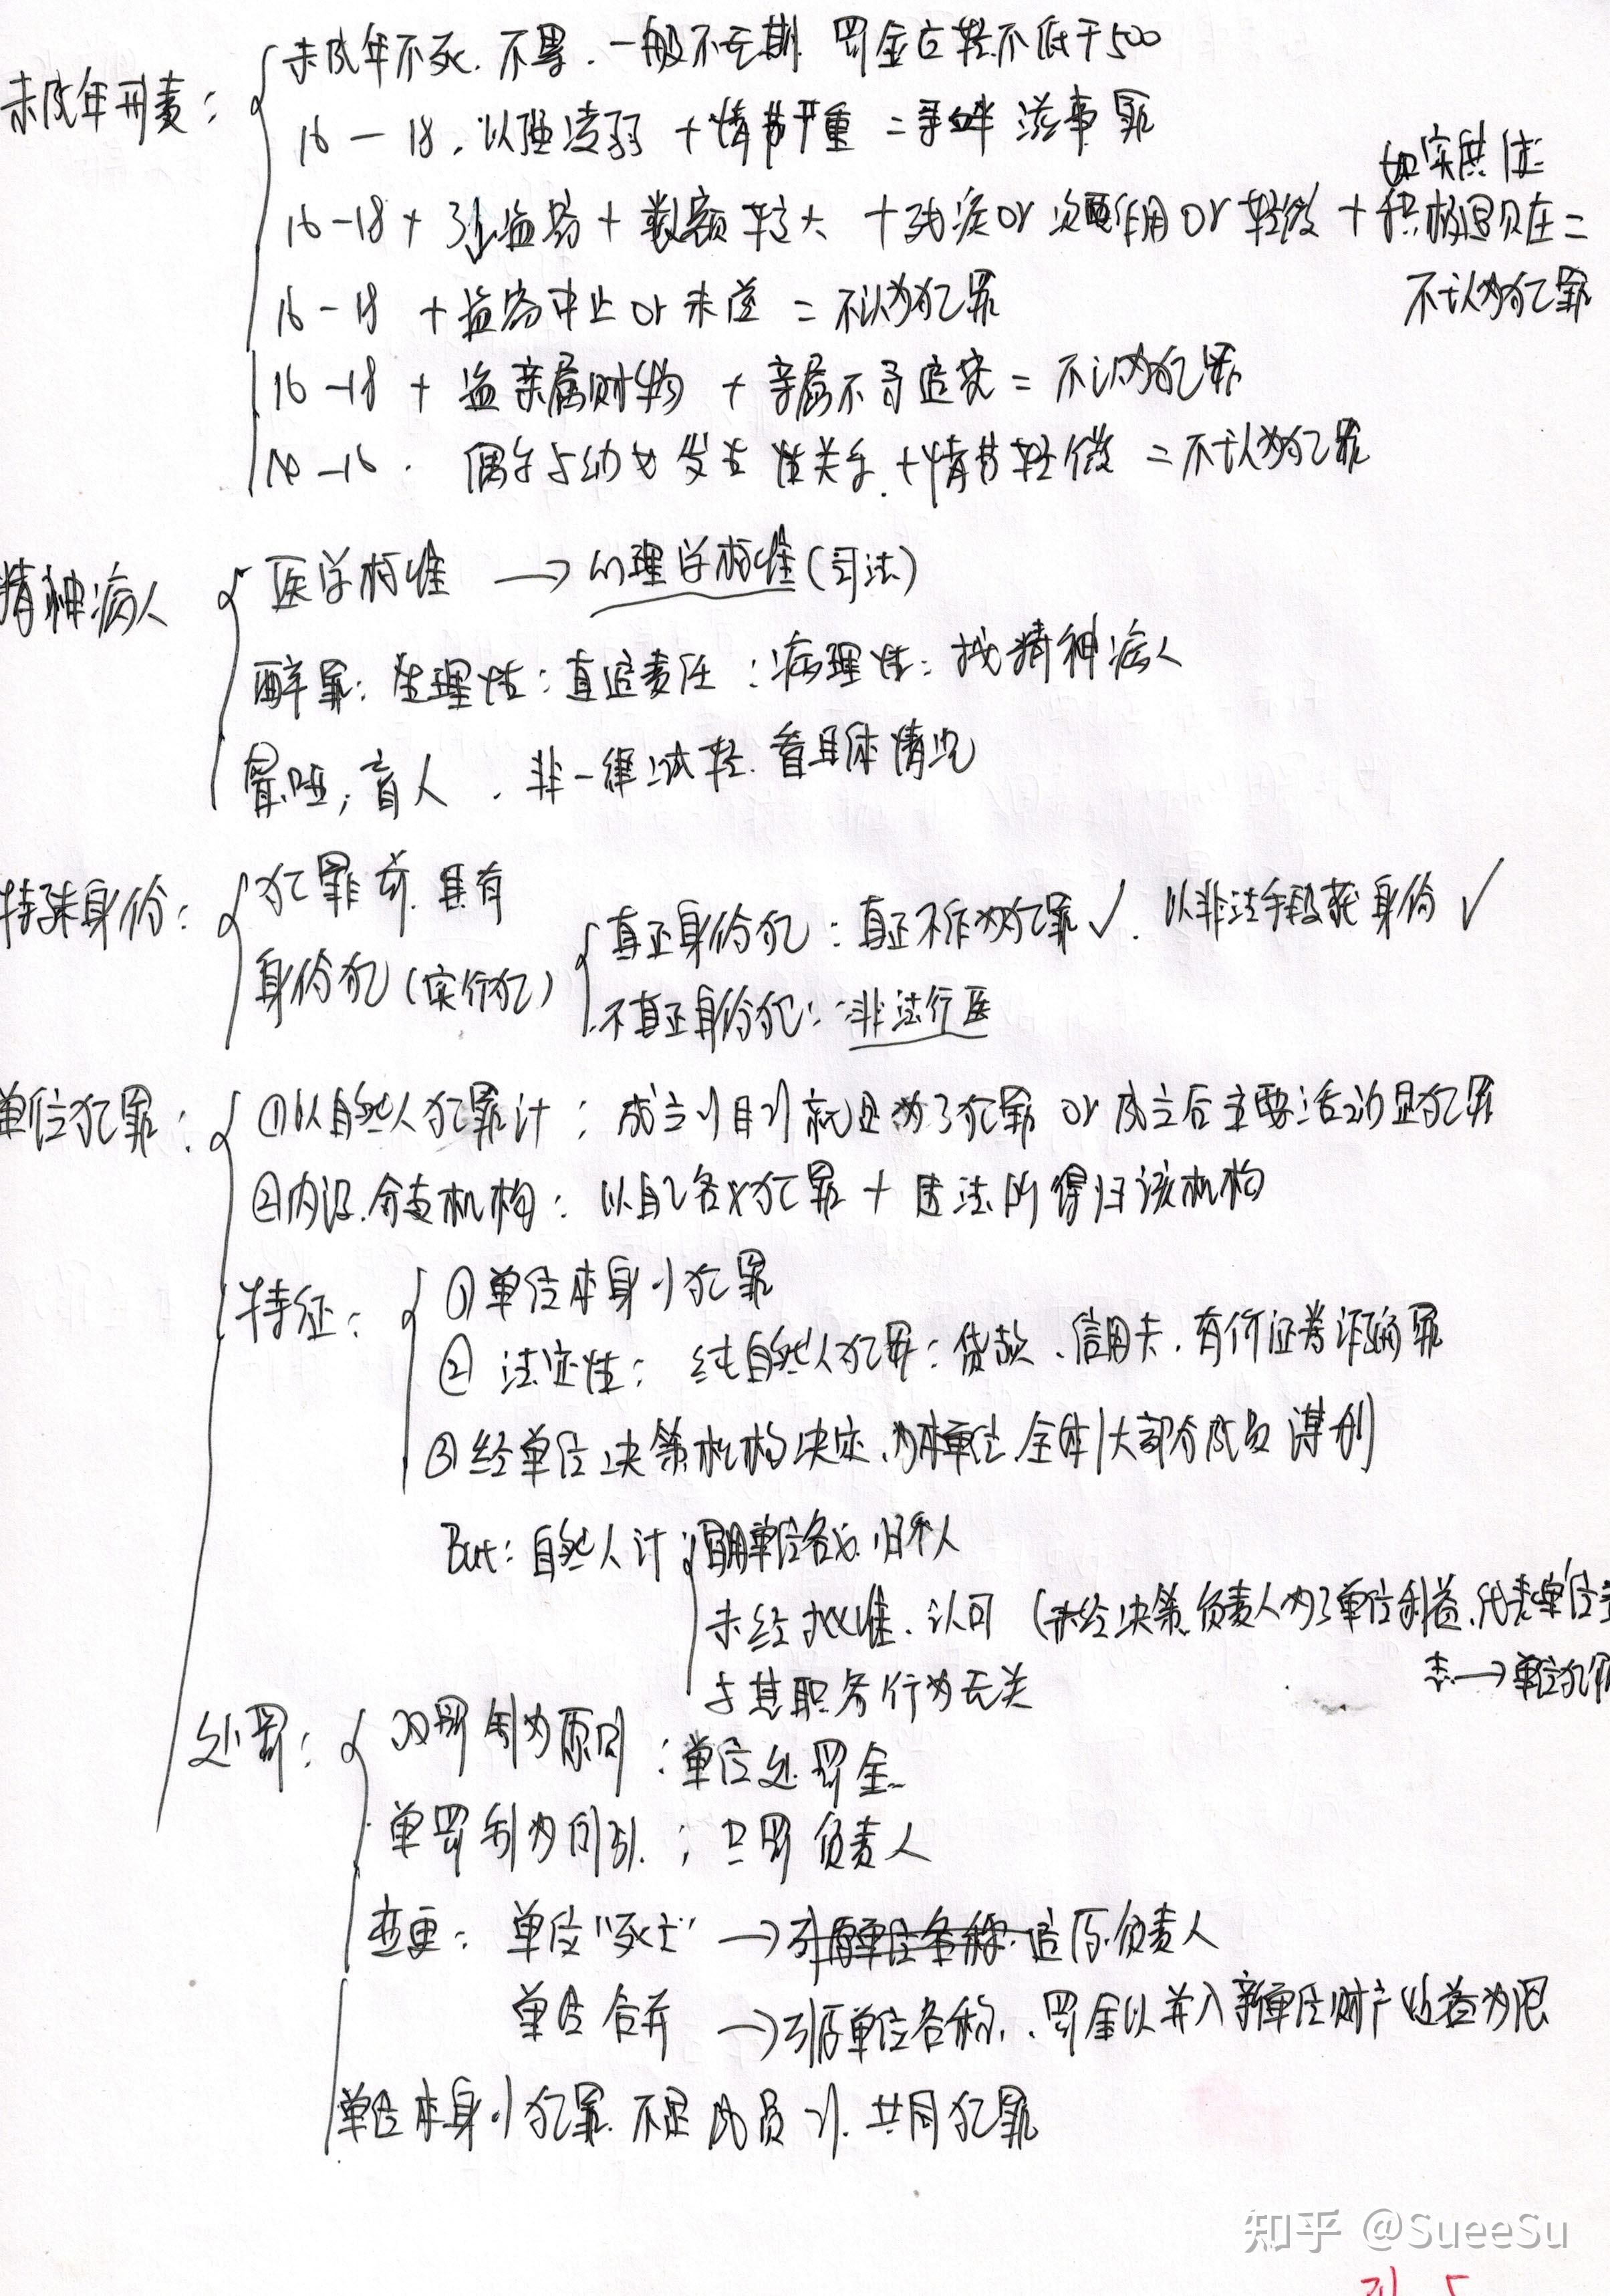 未成年刑责：
未成年不死.不累.一般不无期 罚金应轻不低于500
16－18.以强凌弱＋情节严重＝寻衅滋事罪
如实供述
16－18＋3次盗窃＋数额较大＋残疾or次要作用or轻微＋积极退赃在＝
不认为犯罪
16－18＋盗窃中止or未遂＝不认为犯罪
16－18＋盗亲属财物＋亲属不予追究＝不认为犯罪
14－16. 偶尔与幼女发生性关系.＋情节轻微＝不认为犯罪
精神病人
医学标准→心理学标准(司法)
醉罪：生理性：直追责任；病理性：找精神病人
聋哑；盲人.非一律减轻.看具体情况
特殊身份：
犯罪前.具有
身份犯(实行犯)
真正身份犯：真正不作为犯罪✓. 以非法手段获身份✓
不真正身份犯：非法行医
单位犯罪：
①以自然人犯罪计：成立的目的就是为了犯罪or成立后主要活动是犯罪
②内设.分支机构：以自己名义犯罪＋违法所得归该机构
特征：
①单位本身的犯罪
②法定性：纯自然人犯罪：贷款、信用卡.有价证券诈骗罪
③经单位决策机构决定.为本单位.全体|大部分成员谋利
But：自然人计 冒用单位名义.归个人
未经批准.认可(未经决策.负责人为了单位利益.代表单位意
志→单位犯罪
与其职务行为无关
处罚：
双罚制为原则：单位处罚金
单罚制为例外.；只罚负责人
变更：单位"死亡"→引原单位名称.追原负责人
单位合并→引原单位名称.罚金以并入新单位财产收益为限
单位本身的犯罪.不是成员的.共同犯罪
知乎 @SueeSu